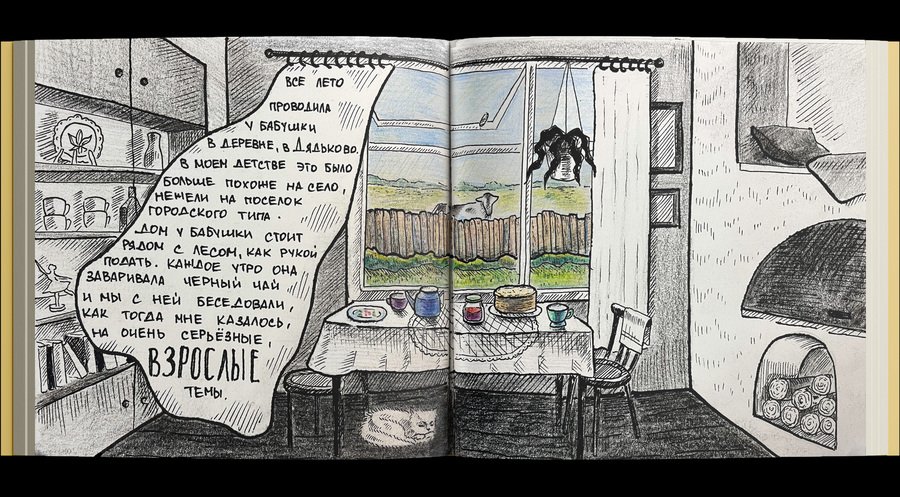 ВСЕ ЛЕТО
ПРОВОДИЛА
У БАБУШКИ
В ДЕРЕВНЕ, В ДЯДЬКОВО.
В МОЕМ ДЕТСТВЕ ЭТО БЫЛО
БОЛЬШЕ ПОХОЖЕ НА СЕЛО,
НЕЖЕЛИ НА ПОСЕЛОК
ГОРОДСКОГО ТИПА.
ДОМ У БАБУШКИ СТОИТ
РЯДОМ С ЛЕСОМ, КАК РУКОЙ
ПОДАТЬ. КАЖДОЕ УТРО ОНА
ЗАВАРИВАЛА ЧЕРНЫЙ ЧАЙ
И МЫ С НЕЙ БЕСЕДОВАЛИ,
КАК ТОГДА МНЕ КАЗАЛОСЬ,
НА ОЧЕНЬ СЕРЬЁЗНЫЕ,
ВЗРОСЛЫЕ
ТЕМЫ.